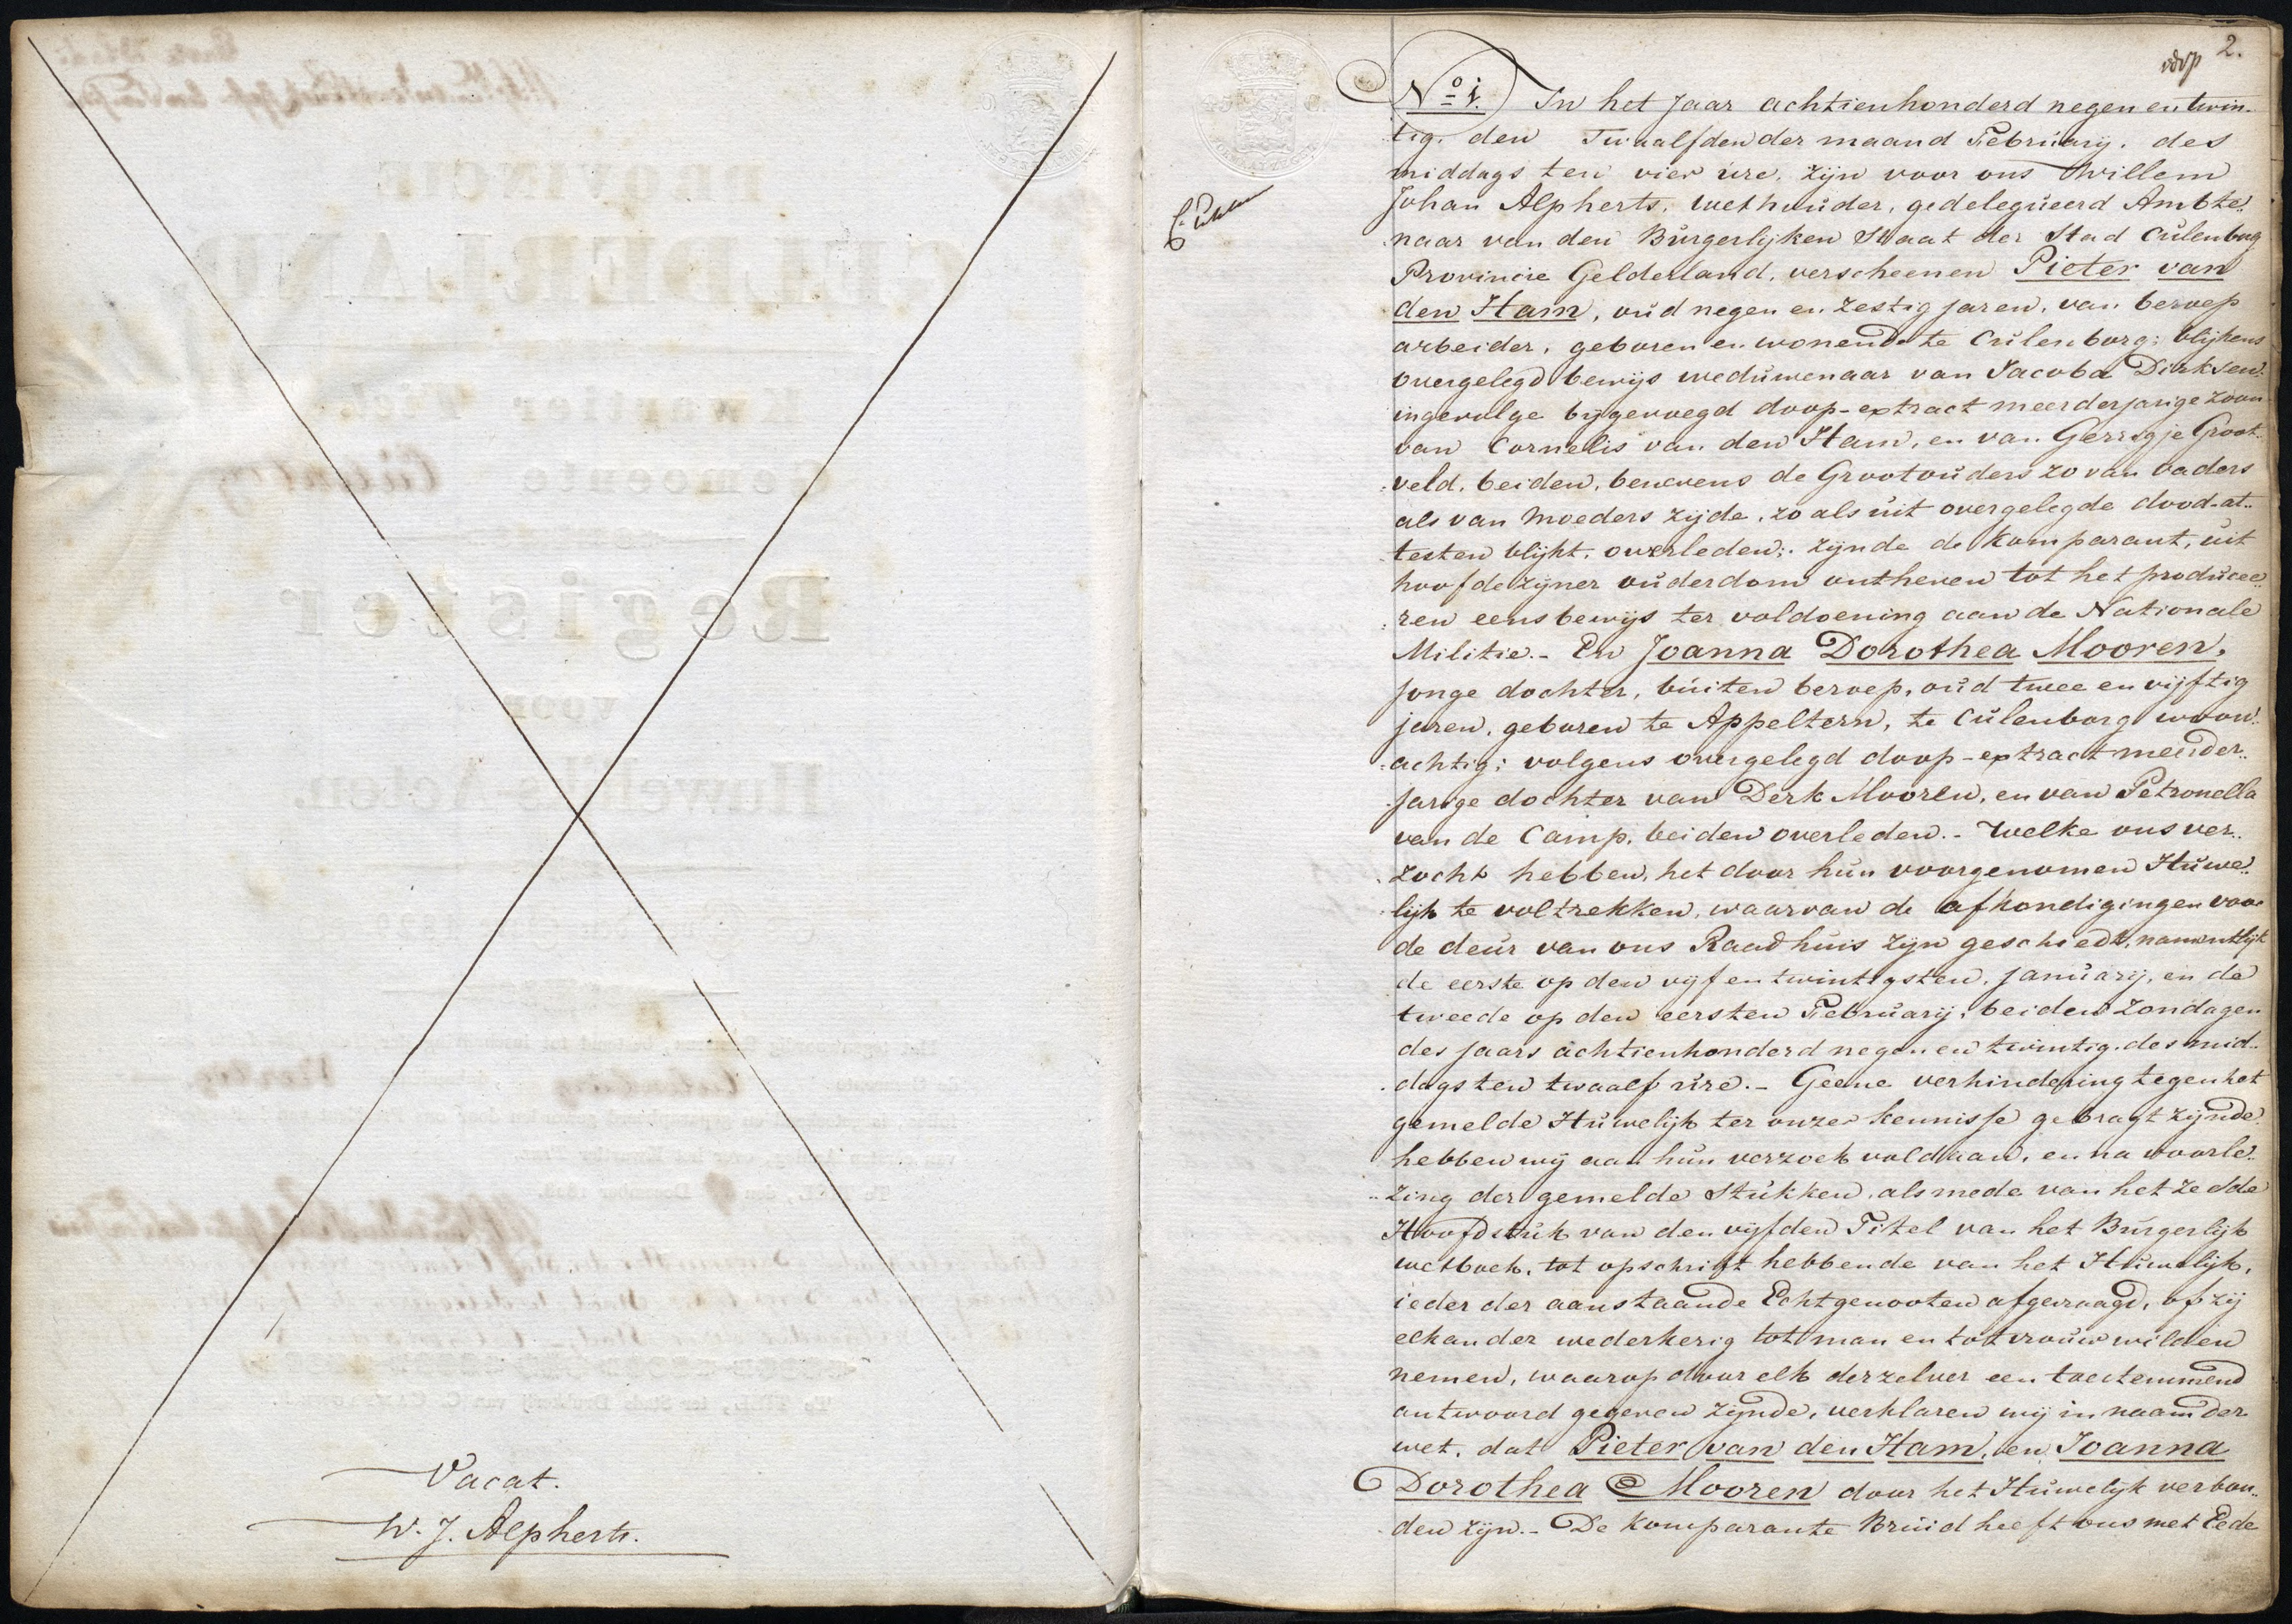 Vacat.
W. J. Alpherts.
2.
No. 1. In het Jaar achtienhonderd negen en twin-
tig. den Twaalfden der maand February. des
middags ten vier ure, zijn voor ons Willem
Johan Alpherts, wethouder, gedelegueerd Ambte„
naar van den Burgerlijken Staat der Stad Culenborg
Provincie Gelderland, verscheenen Pieter van
den Ham, oud negen en zestig jaren, van beroep
arbeider, geboren en wonende te Culenborg; blijkens
overgelegd bewijs weduwenaar van Jacoba Dirksen.
ingevolge bijgevoegd doop-extract meerderjarige zoon
van Cornelis van den Ham, en van Gerrigje Groot„
veld, beiden, benevens de Grootouders zo van vaders
als van moeders zijde, zo als uit overgelegde dood-at„
testen blijkt, overleden; zijnde de komparant, uit
hoofde zijner ouderdom ontheven tot het producee„
ren eens bewijs ter voldoening aan de Nationale
Militie.- En Joanna Dorothea Mooren,
jonge dochter, buiten beroep, oud twee en vijftig
jaren, geboren te Appeltern, te Culenborg woon„
achtig; volgens overgelegd doop-extract meerder„
jarige dochter van Derk Mooren, en van Petronella
van de Camp, beiden overleden.- Welke ons ver„
zocht hebben, het door hun voorgenomen Huwe„
lijk te voltrekken, waarvan de afkondigingen voor
de deur van ons Raadhuis zijn geschiedt, namentlijk
de eerste op den vijf en twintigsten January, en de
tweede op den eersten February, beiden Zondagen
des jaars achtienhonderd negen en twintig. des mid„
dags ten twaalf ure.- Geene verhindering tegen het
gemelde Huwelijk ter onzer kennisse gebragt zijnde
hebben wij aan hun verzoek voldaan, en na voorle„
zing der gemelde Stukken, alsmede van het zesde
Hoofdstuk van den vijfden Titel van het Burgerlijk
wetboek, tot opschrift hebbende van het Huwelijk,
ieder der aanstaande Echtgenooten afgevraagd, of zij
elkander wederkerig tot man en tot vrouw wilden
nemen, waarop door elk derzelver een toestemmend
antwoord gegeven zijnde, verklaren wij in naam der
wet, dat Pieter van den Ham, en Joanna
Dorothea Mooren door het Huwelijk verbon„
den zijn.- De komparante Bruid heeft ons met Eede